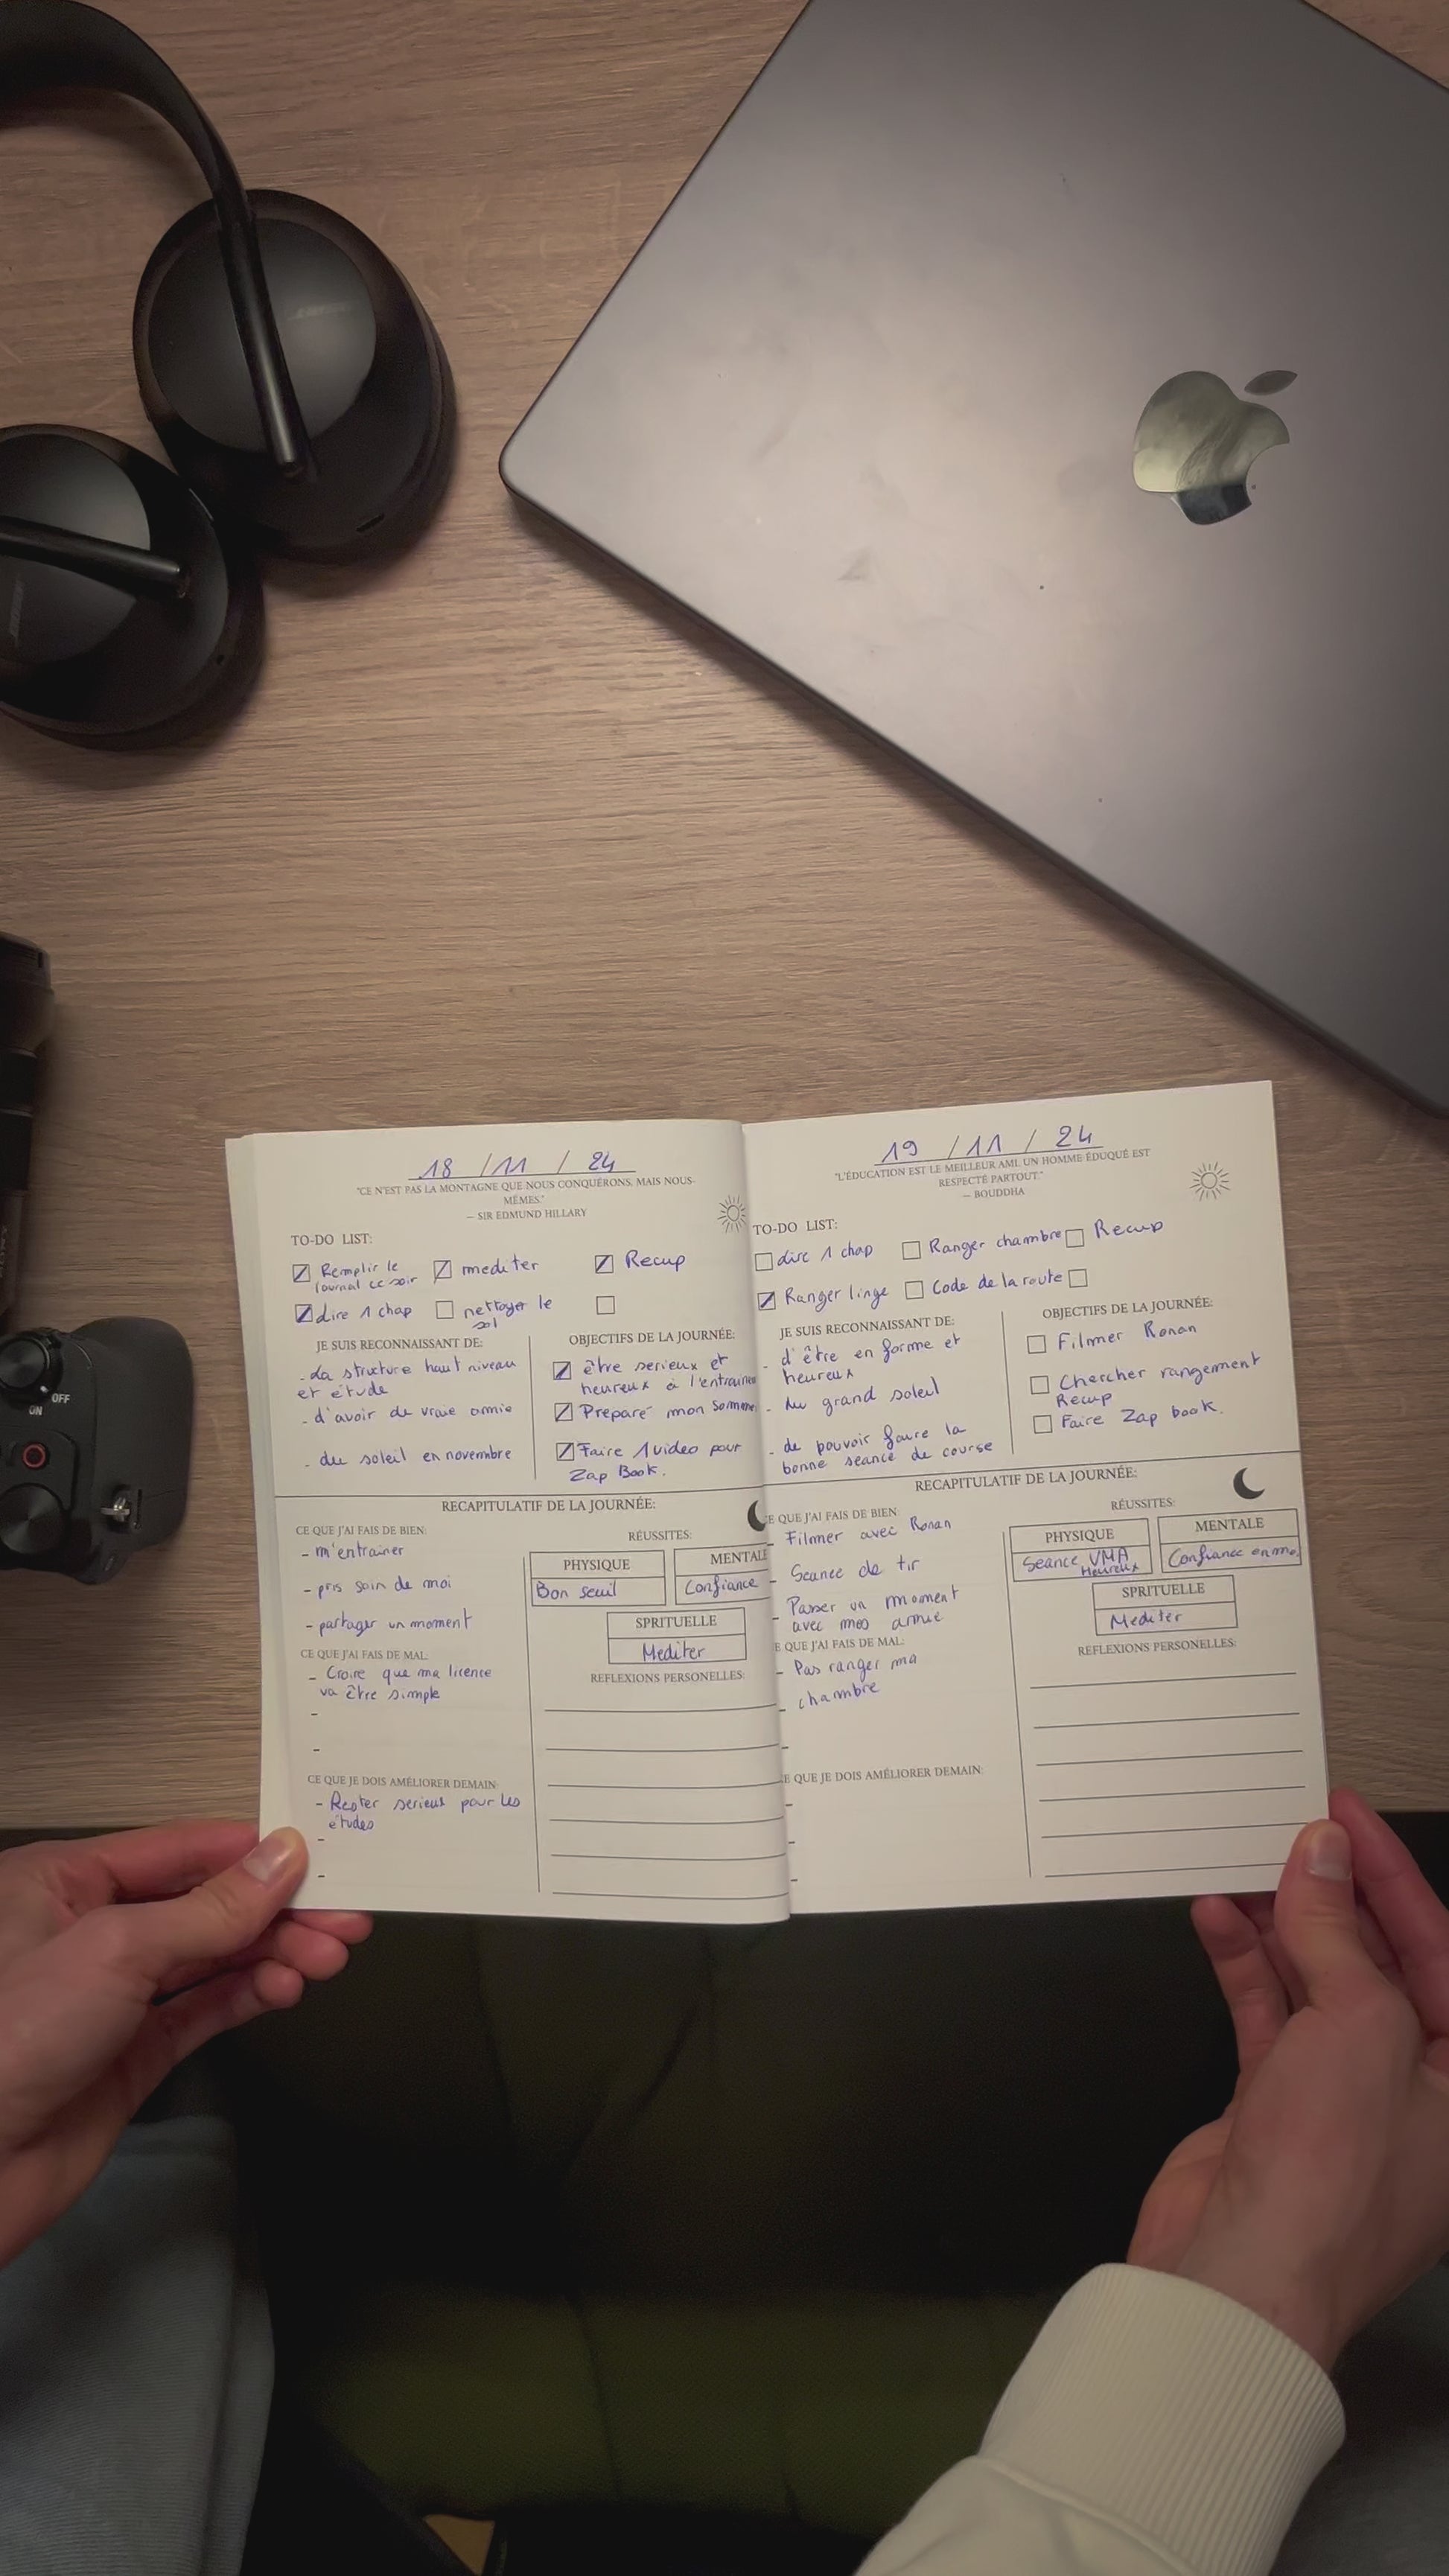 OFF
ON
18 / 11 / 24
"CE N'EST PAS LA MONTAGNE QUE NOUS CONQUÉRONS, MAIS NOUS-
MÊMES."
— SIR EDMUND HILLARY
TO-DO LIST:
Remplir le
Journal ce soir
mediter
Recup
Lire 1 chap
nettoyer le
sol
JE SUIS RECONNAISSANT DE:
- La structure haut niveau
et étude
- d'avoir de vraie amie
- du soleil en novembre
OBJECTIFS DE LA JOURNÉE:
être serieux et
heureux à l'entraine
Preparé mon somme
Faire 1 video pour
Zap Book.
RECAPITULATIF DE LA JOURNÉE:
CE QUE J'AI FAIS DE BIEN:
- m'entrainer
- pris soin de moi
- partager un moment
CE QUE J'AI FAIS DE MAL:
- Croire que ma licence
va être simple
-
-
CE QUE JE DOIS AMÉLIORER DEMAIN:
- Rester serieux pour les
études
-
-
RÉUSSITES:
PHYSIQUE
Bon seuil
MENTALE
Confiance
SPRITUELLE
Mediter
REFLEXIONS PERSONELLES:
19 / 11 / 24
"L'ÉDUCATION EST LE MEILLEUR AMI. UN HOMME ÉDUQUÉ EST
RESPECTÉ PARTOUT."
— BOUDDHA
TO-DO LIST:
Lire 1 chap
Ranger chambre
Recup
Ranger linge
Code de la route
JE SUIS RECONNAISSANT DE:
- d'être en forme et
heureux
- du grand soleil
- de pouvoir faire la
bonne seance de course
OBJECTIFS DE LA JOURNÉE:
Filmer Ronan
Chercher rangement
Recup
Faire Zap book.
RECAPITULATIF DE LA JOURNÉE:
E QUE J'AI FAIS DE BIEN:
- Filmer avec Ronan
- Seance de tir
- Passer un moment
avec mes amie
E QUE J'AI FAIS DE MAL:
- Pas ranger ma
- chambre
-
E QUE JE DOIS AMÉLIORER DEMAIN:
-
-
-
RÉUSSITES:
PHYSIQUE
Seance VMA
Heureux
MENTALE
Confiance en mo
SPRITUELLE
Mediter
REFLEXIONS PERSONELLES: